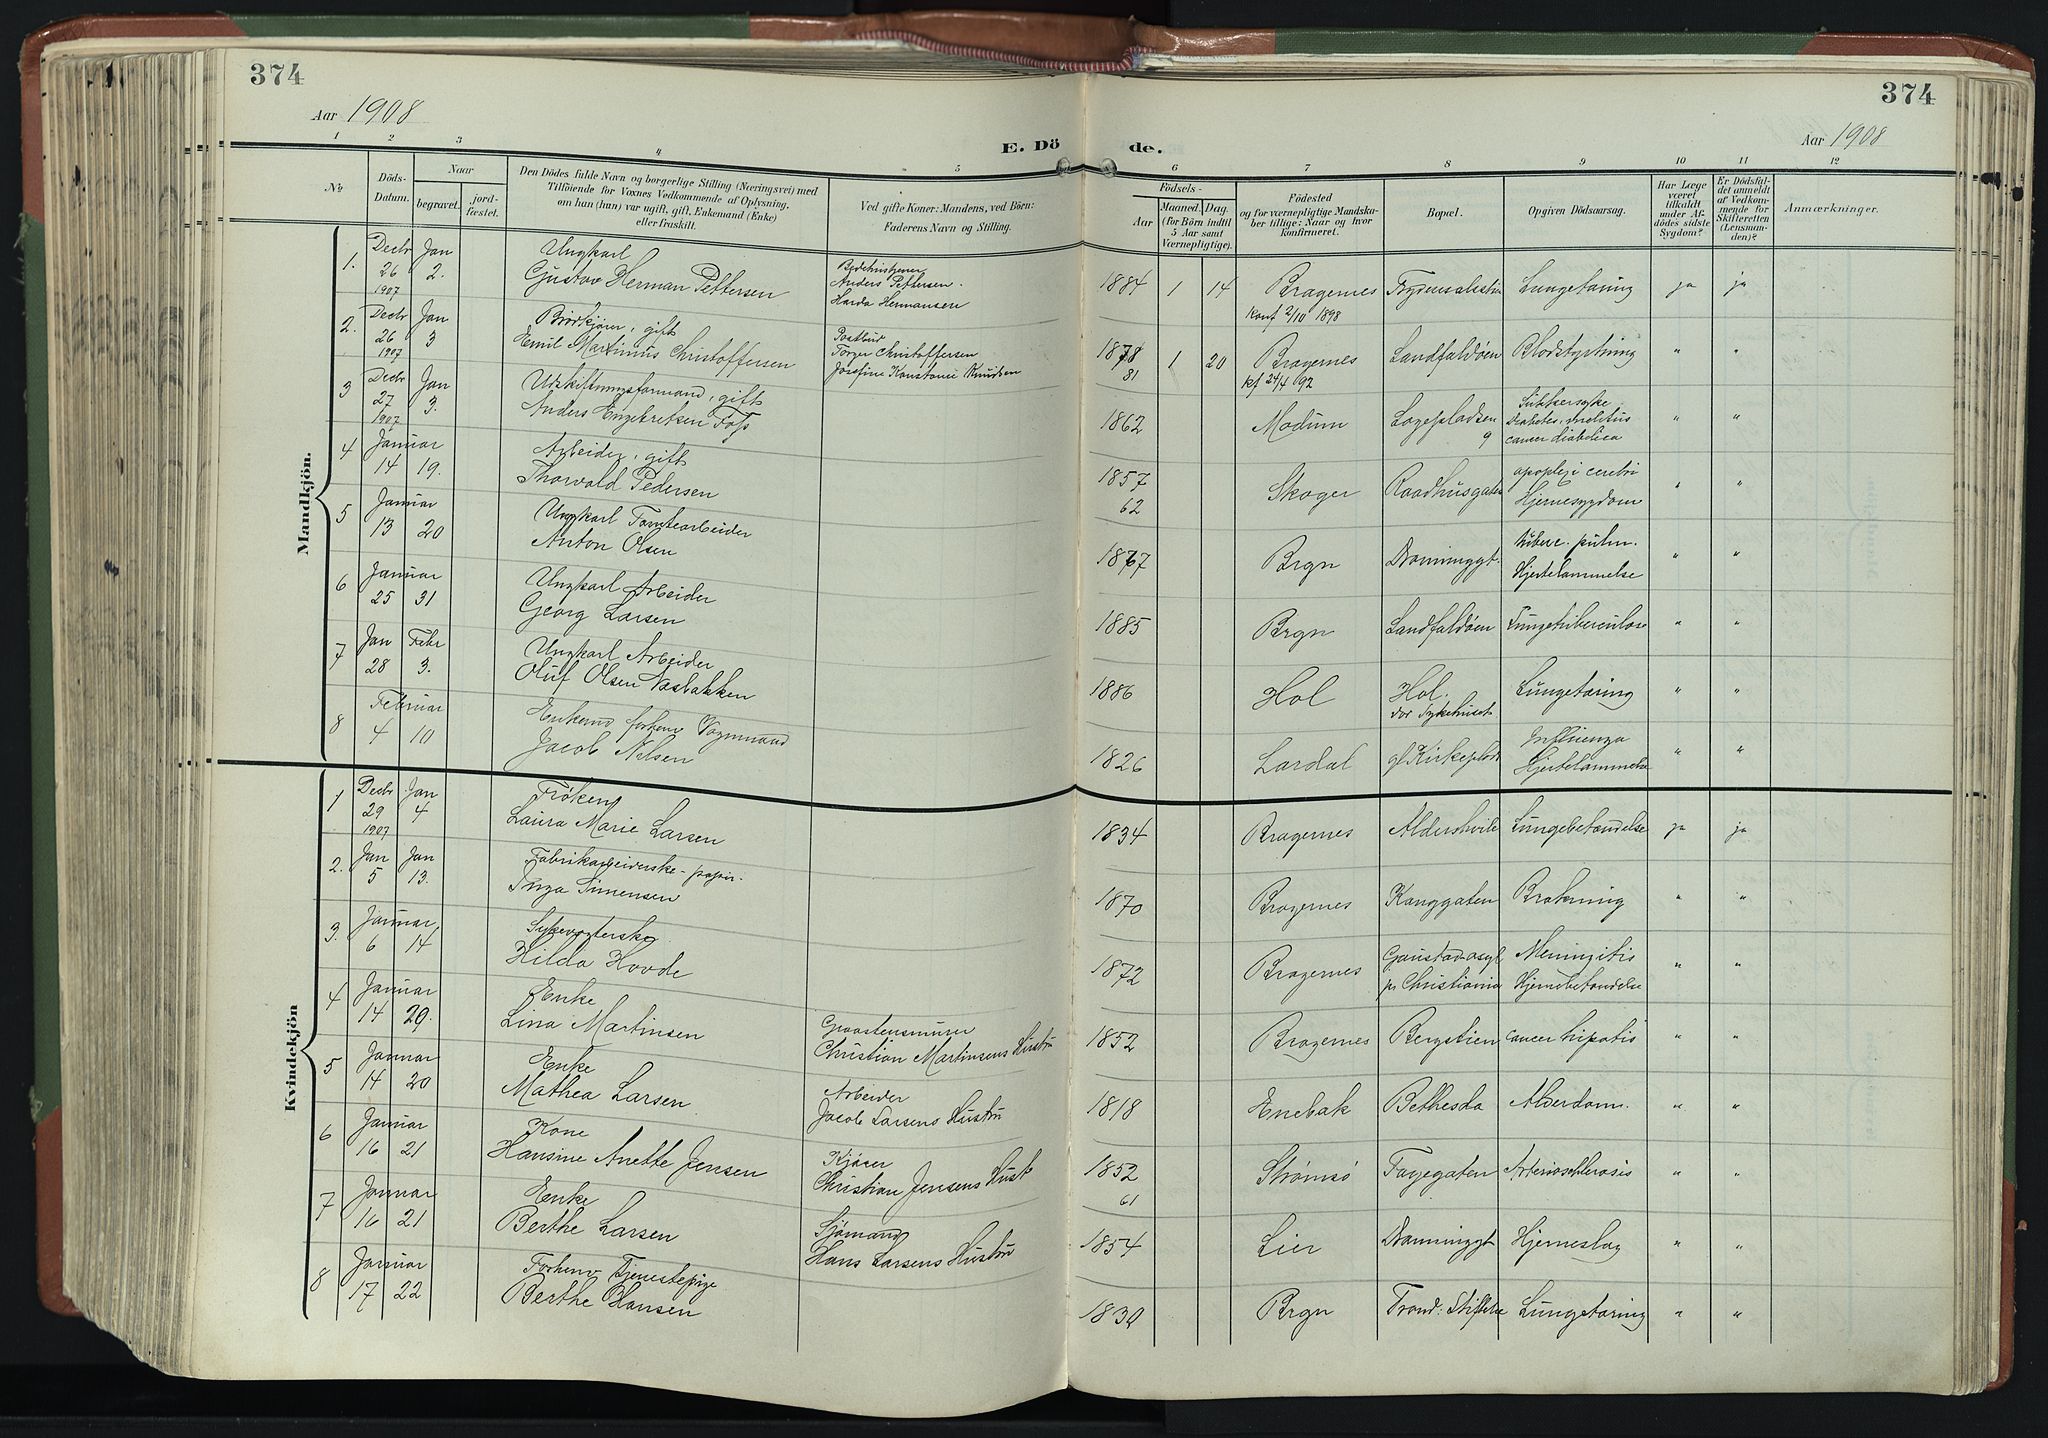 374
374
Aar 1908
Aar 1908
E. Dö
de.
1 2 3 4 5 6 7 8 9 10 11 12
№
Döds-
Datum.
Naar
begravet.
jord-
fæstet.
Den Dödes fulde Navn og borgerlige Stilling (Næringsvei) med
Tilföiende for Voxnes Vedkommende af Oplysning,
om han (hun) var ugift, gift, Enkemand (Enke)
eller fraskilt.
Ved gifte Koner: Mandens, ved Börn:
Faderens Navn og Stilling.
Födsels-
Aar
Maaned.
Dag.
(for Börn indtil
5 Aar samt
Værnepligtige).
Födested
og for værnepligtige Mandska-
ber tillige: Naar og hvor
konfirmeret.
Bopæl.
Opgiven Dödsaarsag.
Har Læge
været
tilkaldt
under Af-
dödes sidste
Sygdom?
Er Dödsfal-
det anmeldt
af Vedkom-
mende for
Skifteretten
(Lensman-
den)?
Anmærkninger.
Mandkjön.
1. Decbr 26 1907 Jan 2.
Ungkarl
Gustav Herman Pettersen
Anders Pettersen
Harda Hermansen
1884 1 14 Bragernes Lungetæring ja ja
konf 2/10 1898
2. Decbr 26 1907 Jan 3
Brødkjører, gift
Emil Martinius Christoffersen
Postbud
Torger Christoffersen
Josefine Konstanse Knudsen
1878 1 20 Bragernes Landfaldøen Blodstyrtning " "
81
kf 24/4 92
3 Decbr 27 1907 Jan 3.
Udskiftningsformand, gift
Anders Engebretsen Foss
1862 Modum Logepladsen 9
Sukkersyke
Diabetes melitus
" "
4 Januar 14 19.
Arbeider, gift
Thorvald Pedersen
1857 Skoger Raadhusgaten
62
apoplexi cerebri
Hjernesygdom
" "
5 Januar 13 20
Ungkarl Tomtearbeider
Anton Olsen
1867 Brgn Dronninggt.
tuberc. pulm.
Hjertelammelse
" "
6 Januar 25 31
Ungkarl Arbeider
Georg Larsen
1885 Brgn Landfaldøen Lungetuberculose " "
7 Jan 28 Febr 3.
Ungkarl Arbeider
Oluf Olsen
1886 Hol Hol. Lungetæring " "
8 Februar 4 10
Enkemd forhenv Vognmand
Jacob Nilsen
1826 Lardal gl Kirkeplads
Influenza
Hjertelammelse
" "
Kvindekjön
1 Decbr 29 1907 Jan 4
Frøken
Laura Marie Larsen
1834 Bragernes Aldershvile Lungebetændelse ja ja
2. Jan 5 Jan 13.
Fabrikarbeiderske - papir.
Inga Simensen
1870 Bragernes Konggaten Brækning " "
3. Januar 6 14
Sykevogterske
Hilda Hovde
1872 Bragernes
Gaustad asyl
pr Christiania
Meningitis
Hjernebetændelse
" "
4 Januar 14 29.
Enke
Lina Martinsen
Graastensmurer
Christian Martinsens Hustru
1852 Bragernes Bergstien cancer hipatis " "
5 Januar 14 20
Enke
Mathea Larsen
Arbeider
Jacob Larsens Hustru
1818 Enebak Bethesda Alderdom. " "
6 Januar 16 21
Kone
Hansine Anette Jensen
Kjører
Christian Jensens Hust
1852 Strømsø Fayegaten Arteriosclerosis " "
61
7 Januar 16 21
Enke
Berthe Larsen
Sjømand
Hans Larsens Hustru
1854 Lier Dronninggt Hjerneslag " "
8 Januar 17 22
Forhenv Tjenestepige
Berthe Hansen
1830 Brgn Lungetæring " "